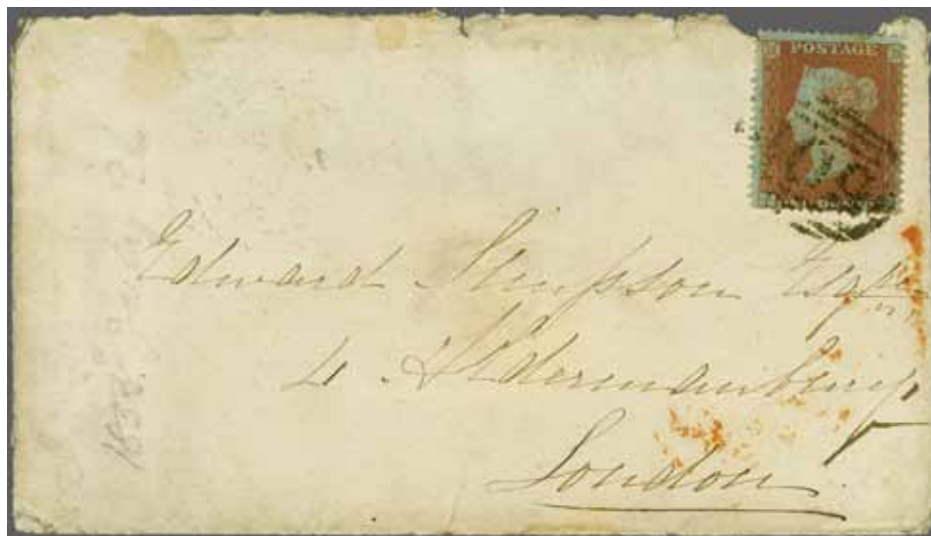 POSTAGE
Edward Simpson Esqre
4 Aldermanbury
London